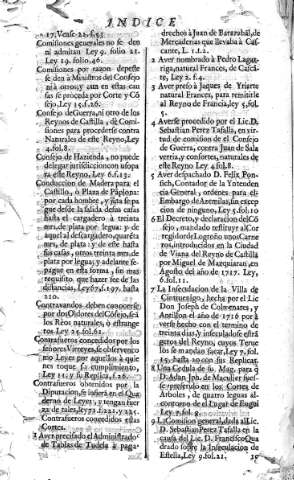 INDICE
17. Vease 22. f. 95.
Comisiones generales no se den
ni admitan Ley 9. folio 21.
Ley 19. folio 46.
Comisiones por razon depeste
se den à Ministros del Consejo
ni à otros, y aun en estas cau
sas se proceda por Corte y Cõ
sejo, Ley 15. f. 26.
Consejo de Guerra, ni otro de los
Reynos de Castilla, dè Comi
siones para procederse contra
Naturales de este Reyno, Ley
4. fol. 8.
Consejo de Hazienda, no puede
delegar jurisdiccion ni sopa
ra, Ley 6. f. 13.
Conduccion de Madera para el
Castillo, ò Plaza de Pãplona:
por cada hombre, y
gue desde la salida de sus casas
hasta el cargadero à treinta
mrs. de plata por legua: y de
aquel al descargadero, quarẽta
mrs. de plata: y de este hasta
sus casas, otros treinta mrs. de
plata por legua; y adelante se
pague en esta forma, sin mas
requisito que hazer fee de las
distancias, Ley 67. f. 197. hasta
210.
Contravandos deben conocerse
por dos Oidores del Cõsejo, si à
los Reos naturales, ò estrange
ros Ley 24. fol. 61.
Contrafueros concedidos por los
señores Virreyes, se observen co
mo Leyes por aquellos à quie
nes toque su cumplimiento,
Ley 15. y su Replica, f. 26.
Contrafueros obtenidos por la
Diputacion, se insèren en el Qua
derno de Leyes, y tengan fuer
za de tales, Ley 72. f. 224. y 225.
Contrafueros concedidos estas
Cortes.
1 Aver precisado el Administrador
de Tablas de Tudela à paga
drechos à Juan de Barazabàl, de
Mercaderias que llevaba à Cas
cante, L. 1. f. 2.
2 Aver nombrado à Pedro Lagar
riga, natural Frances, de Casca
te, Ley 2. f. 4.
3 Aver preso à Jaques de Yriarte
natural Frances, para remitirlo
al Reyno de Francia, ley 5. fol.
5.
4 Averse procedido por el Lic. D.
Sebastian Perez Tafalla, en vir
tud de comision de el Consejo
de Guerra, contra Juan de Sala
verria, y consortes, naturales de
este Reyno, Ley 4. fol. 8.
5 Aver despachado D. Felix Pon
sich, Contador de la Yntenden
cia General, ordenes para el
Embargo de Azemilas, sin excep
cion de ninguno, Ley 5. fol. 10
6 El Decreto, y declaracion del Cõ
sejo, mandado restituir al Cor
regidor de Logroño unos Carne
ros, introducidos en la Ciudad
de Viana del Reyno de Castilla
por Miguel de Marquiaran, en
Agosto del año de 1717. Ley,
6. fol. 11.
7 La Insecularion de la Villa de
Cintruenigo, hecha por el Lic
Don Joseph de Colmenares, y
Antillon el año de 1716 por à
verse hecho con el termino de
treinta dias, y insculados estrã
geros del Reyno, cuyos Teruelos
los se mandan sacar, Ley 7. fol.
15. hasta 20. con sus Replicas.
8 Una Cedula de su Mag. para q̃
D. Aslan Jph. de Maculier fuesse
preferido en los Cortes de
Arboles, de quatro leguas al
contorno de el Lugar de Eugui
Ley 8. fol. 9.
9 La Comision general, dada al Lic.
D. Sebastian Perez Tafalla en la
causa del Lic. D. Francisco Qua
drado sobre la Inseculacion de
Estella, Ley 9. fol. 21.